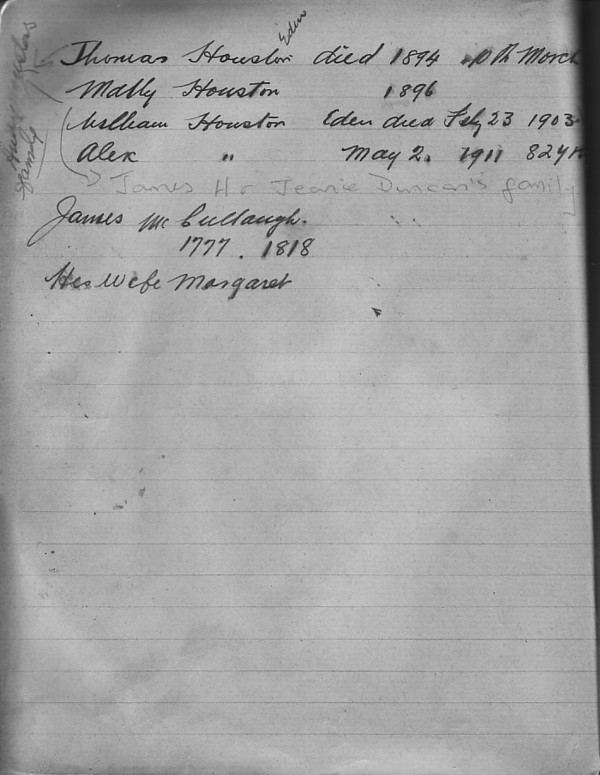 Eden
Thomas Houston died 1894 10th March
Matty Houston 1896
William Houston Eden died Feb 23 1903
Alex " May 2. 1911 82 yrs
James H & Jeanie Duncan's family
James McCullaugh.
1777. 1818
His Wife Margaret
family